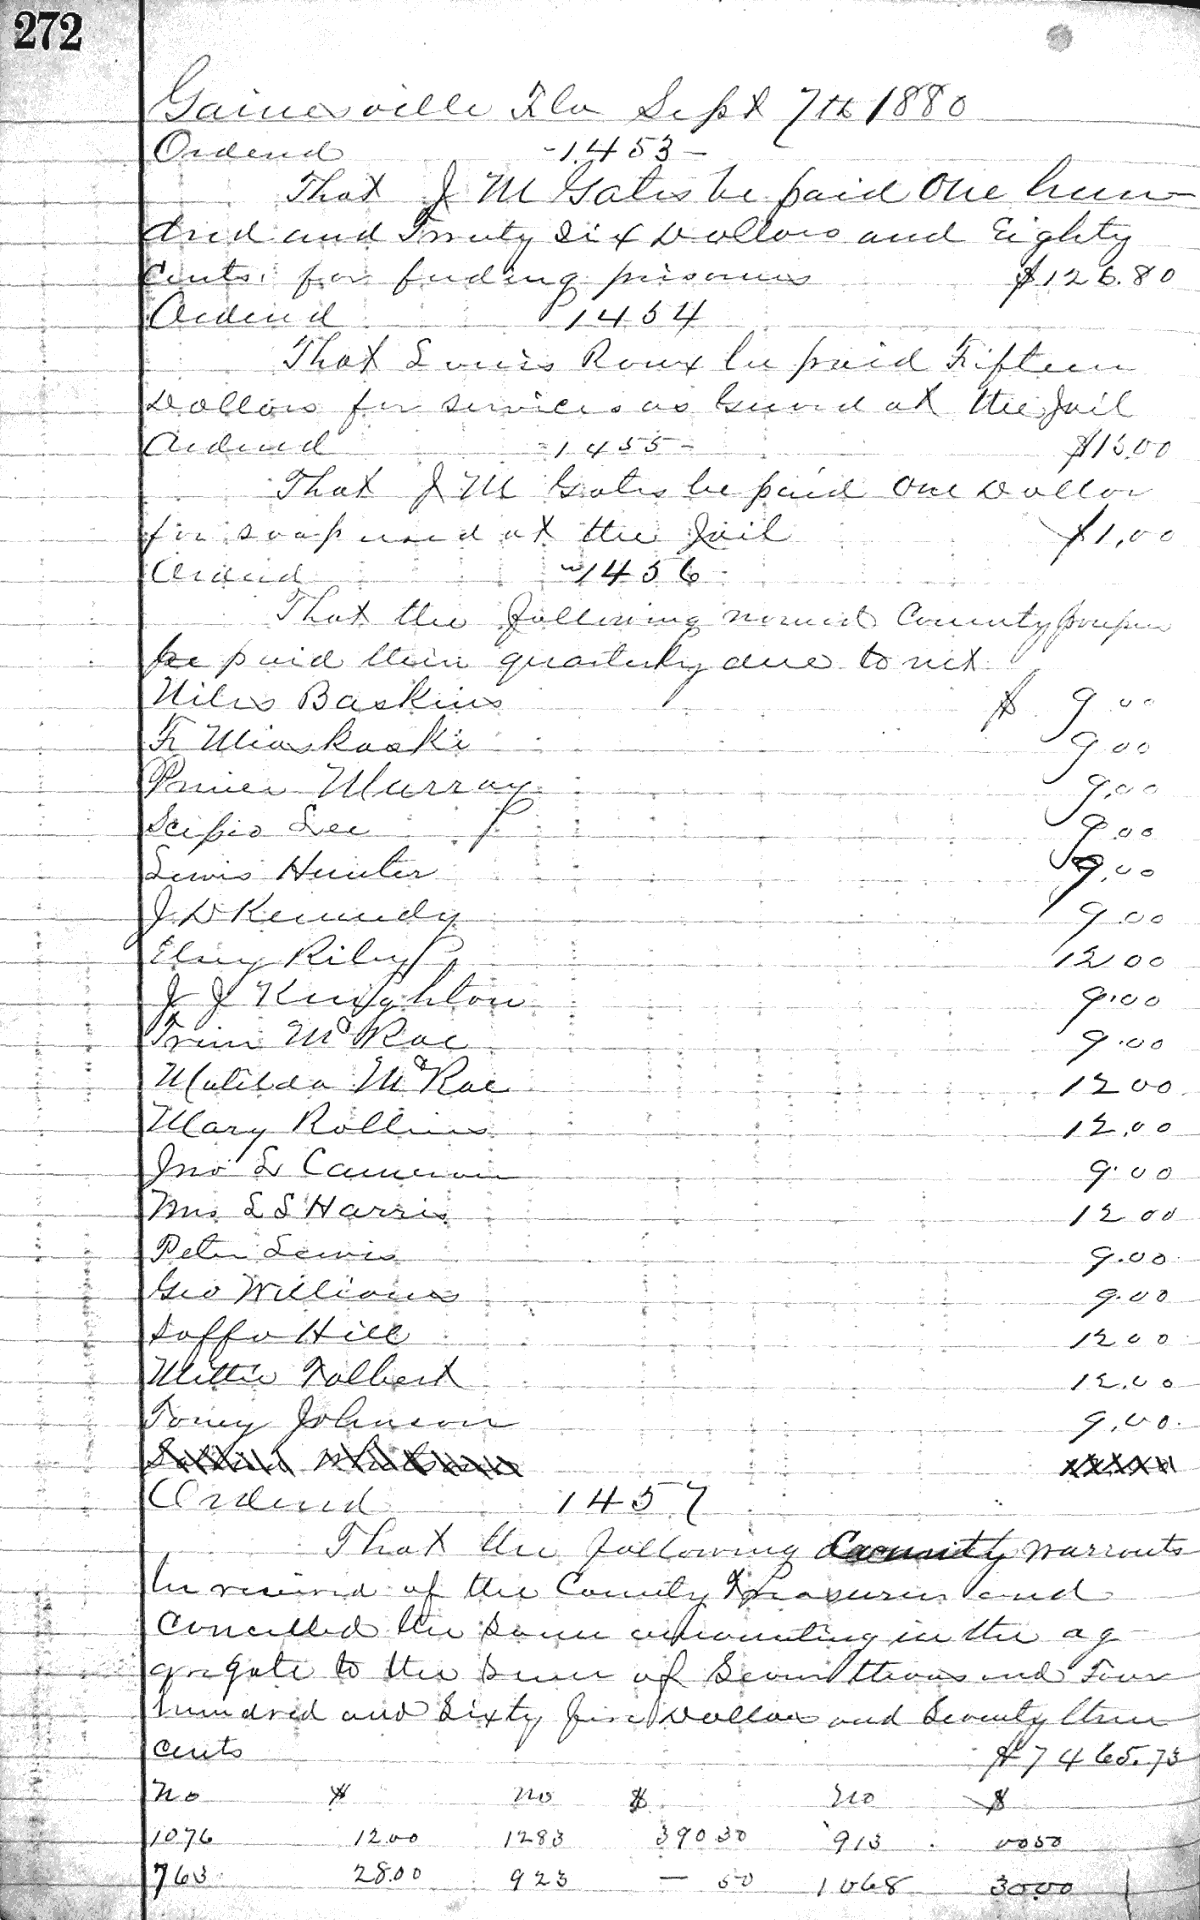 272
Gainesville Fla Sept 7th 1880
Ordered -1453-
That J M Gates be paid One hun
dred and Twenty Six Dollars and Eighty
Cents. for feeding prisoners $126.80
Ordered 1454
That Louis Roux be paid Fifteen
Dollars for services as Guard at the Jail
Ordered -1455- $15.00
That J M Gates be paid One Dollar
for soap used at the Jail $1.00
Ordered 1456
That the following named County
be paid their quarterly due to wit
Niles Baskins $ 9.00
9.00
Murray 9.00
Scipio Lee 9.00
Lewis Hunter 9.00
J D Kennedy 9.00
Riley 12 00
J J Knighton 9.00
McRae 9.00
Matilda McRae 12 00
Mary Rollins 12.00
Jno L Cameron 9.00
Mrs L S Harris 12 00
Peter Lewis 9.00
Geo Williams 9.00
Saffo Hill 12 00
Mittie Talbert 12.00
Toney Johnson 9.00
Ordered 1457
That the following County warrants
be received of the County Treasurer and
Cancelled the same amounting in the ag
gregate to the Sum of Seven thousand Four
hundred and Sixty five Dollars and Seventy three
cents $7465.73
No $ No $ No $
1076 12 00 1283 390 30 913 00 50
763 28.00 923 — 50 1068 30.00